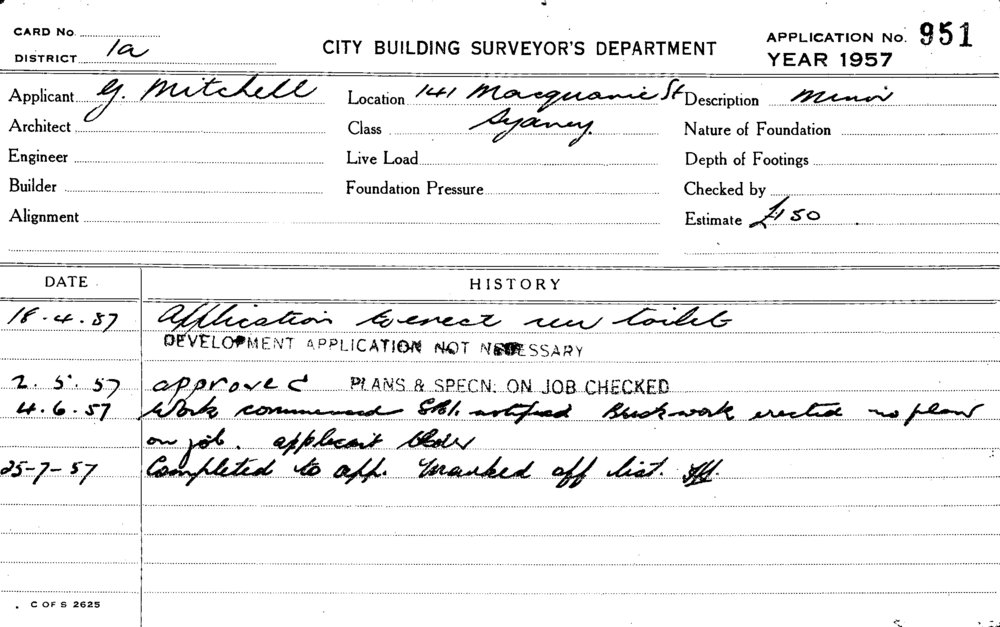 CARD No.
DISTRICT 1a
CITY BUILDING SURVEYOR'S DEPARTMENT
APPLICATION No. 951
YEAR 1957
Applicant G. Mitchell
Location 141 Macquarie St
Sydney.
Description Minor
Architect
Class
Nature of Foundation
Engineer
Live Load
Depth of Footings
Builder
Foundation Pressure
Checked by
Alignment
Estimate £150
DATE
HISTORY
18.4.57 Application to erect new toilet
DEVELOPMENT APPLICATION NOT NECESSARY
2.5.57 approved PLANS & SPECN: ON JOB CHECKED
4.6.57 Work commenced notified Brickwork erected no plans
on job. applicant
25-7-57 Completed to app. Marked off list.
C OF S 2625